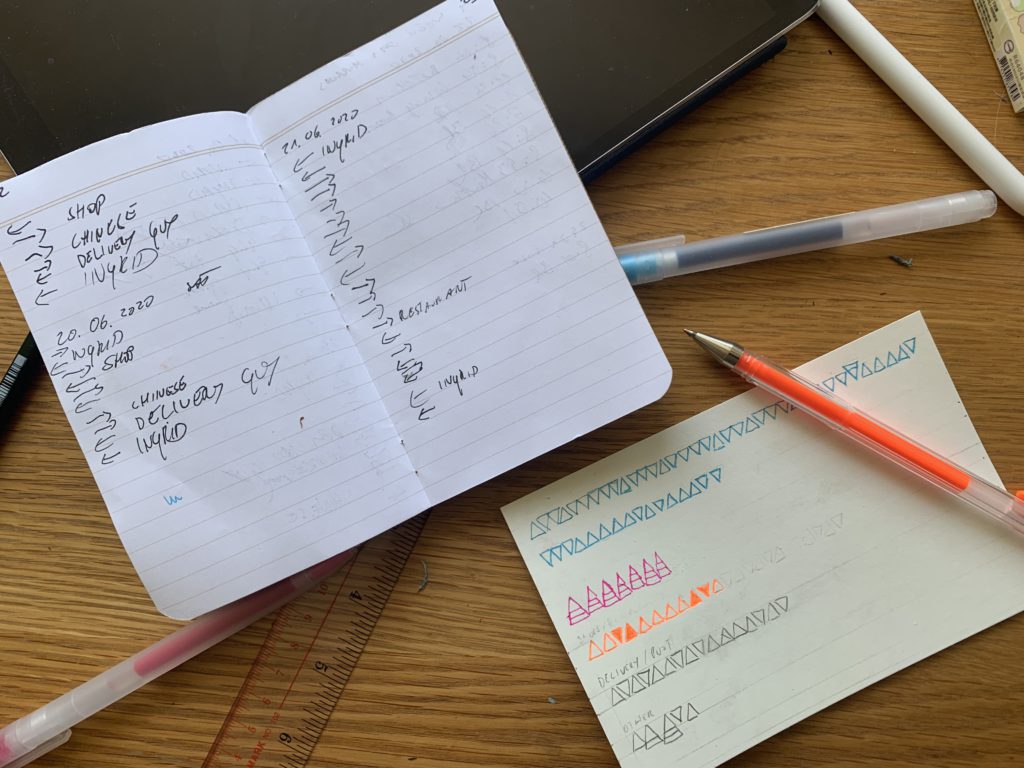 SHOP
CHINESE
DELIVERY GUY
INGRID
20. 06. 2020
INGRID
SHOP
CHINESE
DELIVERY GUY
INGRID
21. 06. 2020
INGRID
RESTAURANT
INGRID
DELIVERY / POST
OTHER
4
5
6